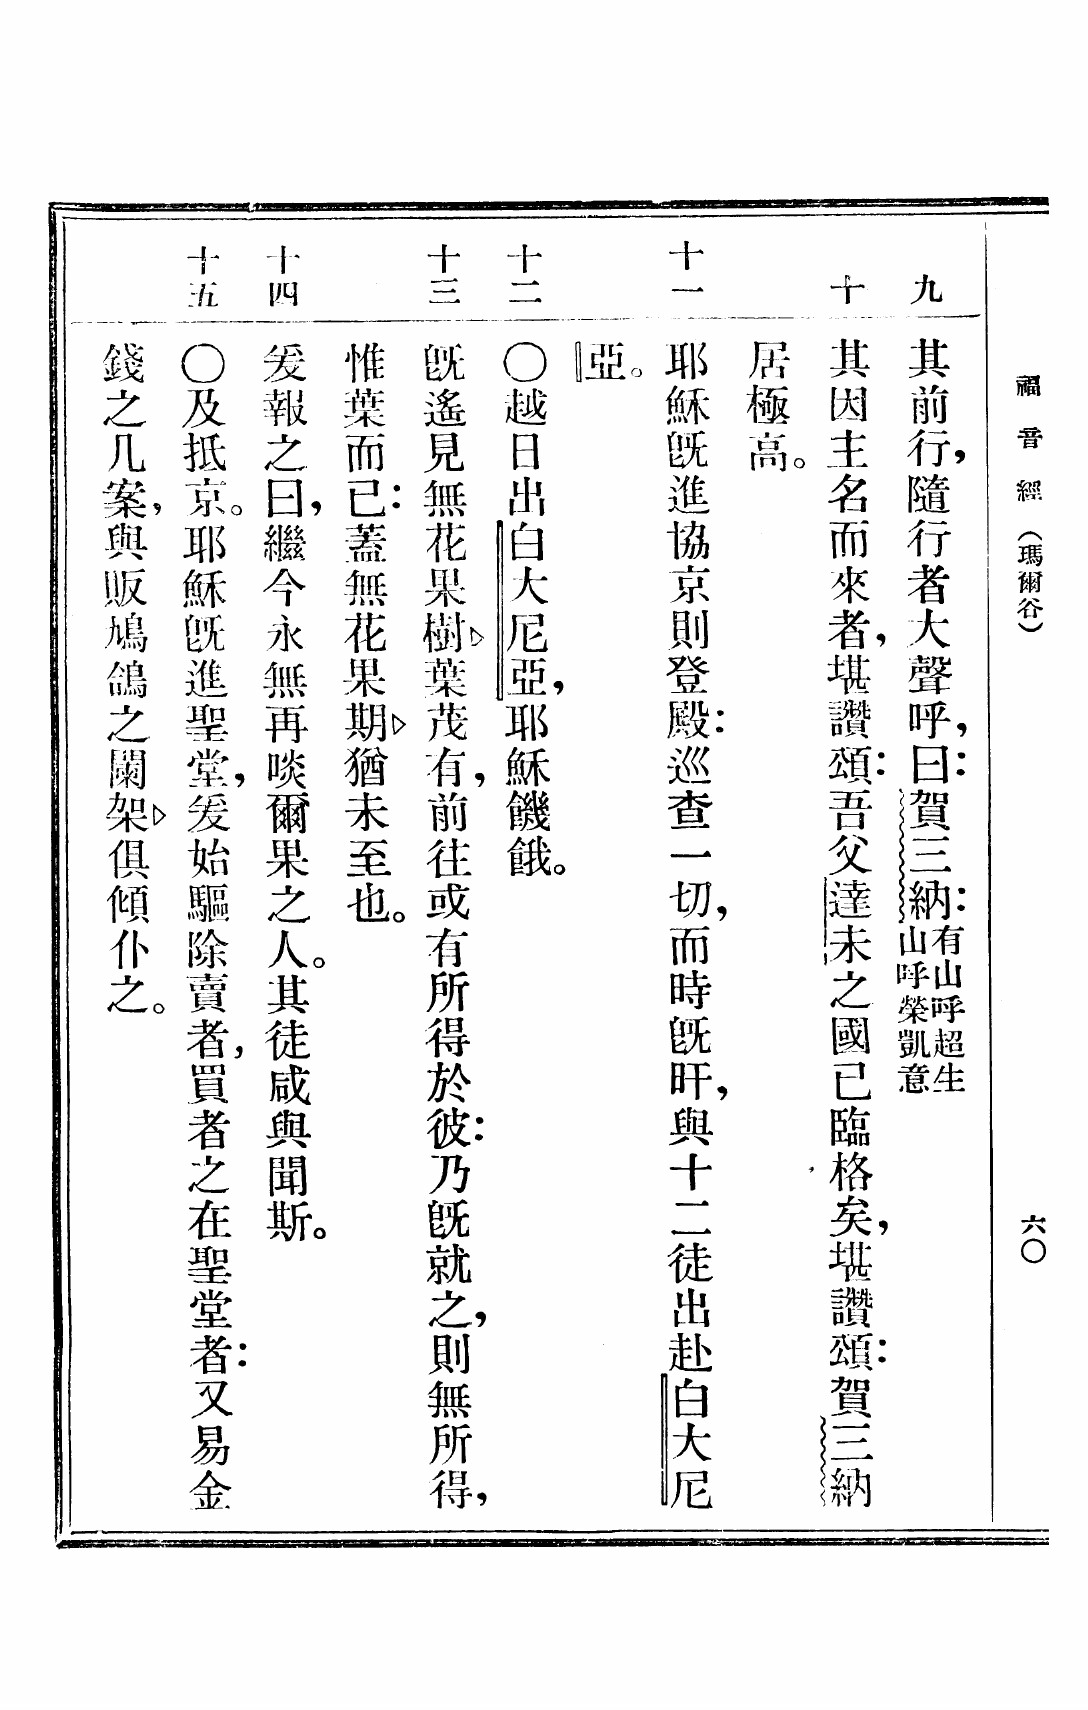 福音經（瑪爾谷）
六〇
九
其前行，隨行者大聲呼，曰：賀三納：有山呼超生山呼榮凱意
十
其因主名而來者，堪讚頌：吾父達未之國已臨格矣，堪讚頌：賀三納
居極高。
十一
耶穌旣進協京則登殿：巡查一切，而時旣旰，與十二徒出赴白大尼
亞。
十二
〇越日出白大尼亞，耶穌饑餓。
十三
旣遙見無花果樹▷葉茂有，前往或有所得於彼：乃旣就之，則無所得，
惟葉而已：蓋無花果期▷猶未至也。
十四
爰報之曰，繼今永無再啖爾果之人。其徒咸與聞斯。
十五
〇及抵京。耶穌旣進聖堂，爰始驅除賣者，買者之在聖堂者：又易金
錢之几案，與販鳩鴿之闌架▷俱傾仆之。